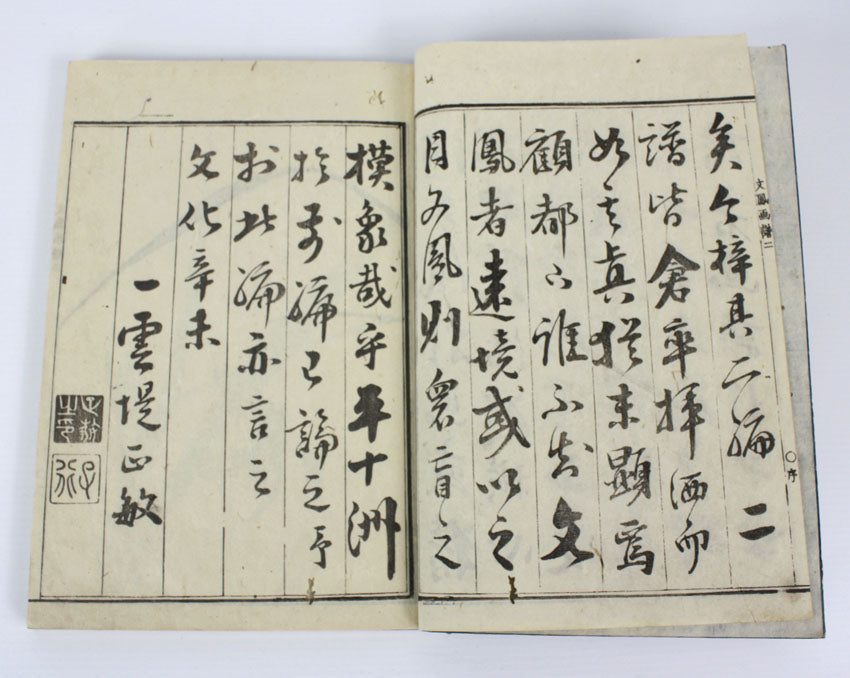 文鳳画譜二
〇序
矣今梓其二編二
譜皆倉卒揮洒而
如其真猶未顕焉
顧都下誰不知文
鳳者遠境或以之
目文鳳則衆盲之
模象哉乎平十洲
於前編已論之予
於此編亦言之
文化辛未
一雲堤正敏
正敏之印